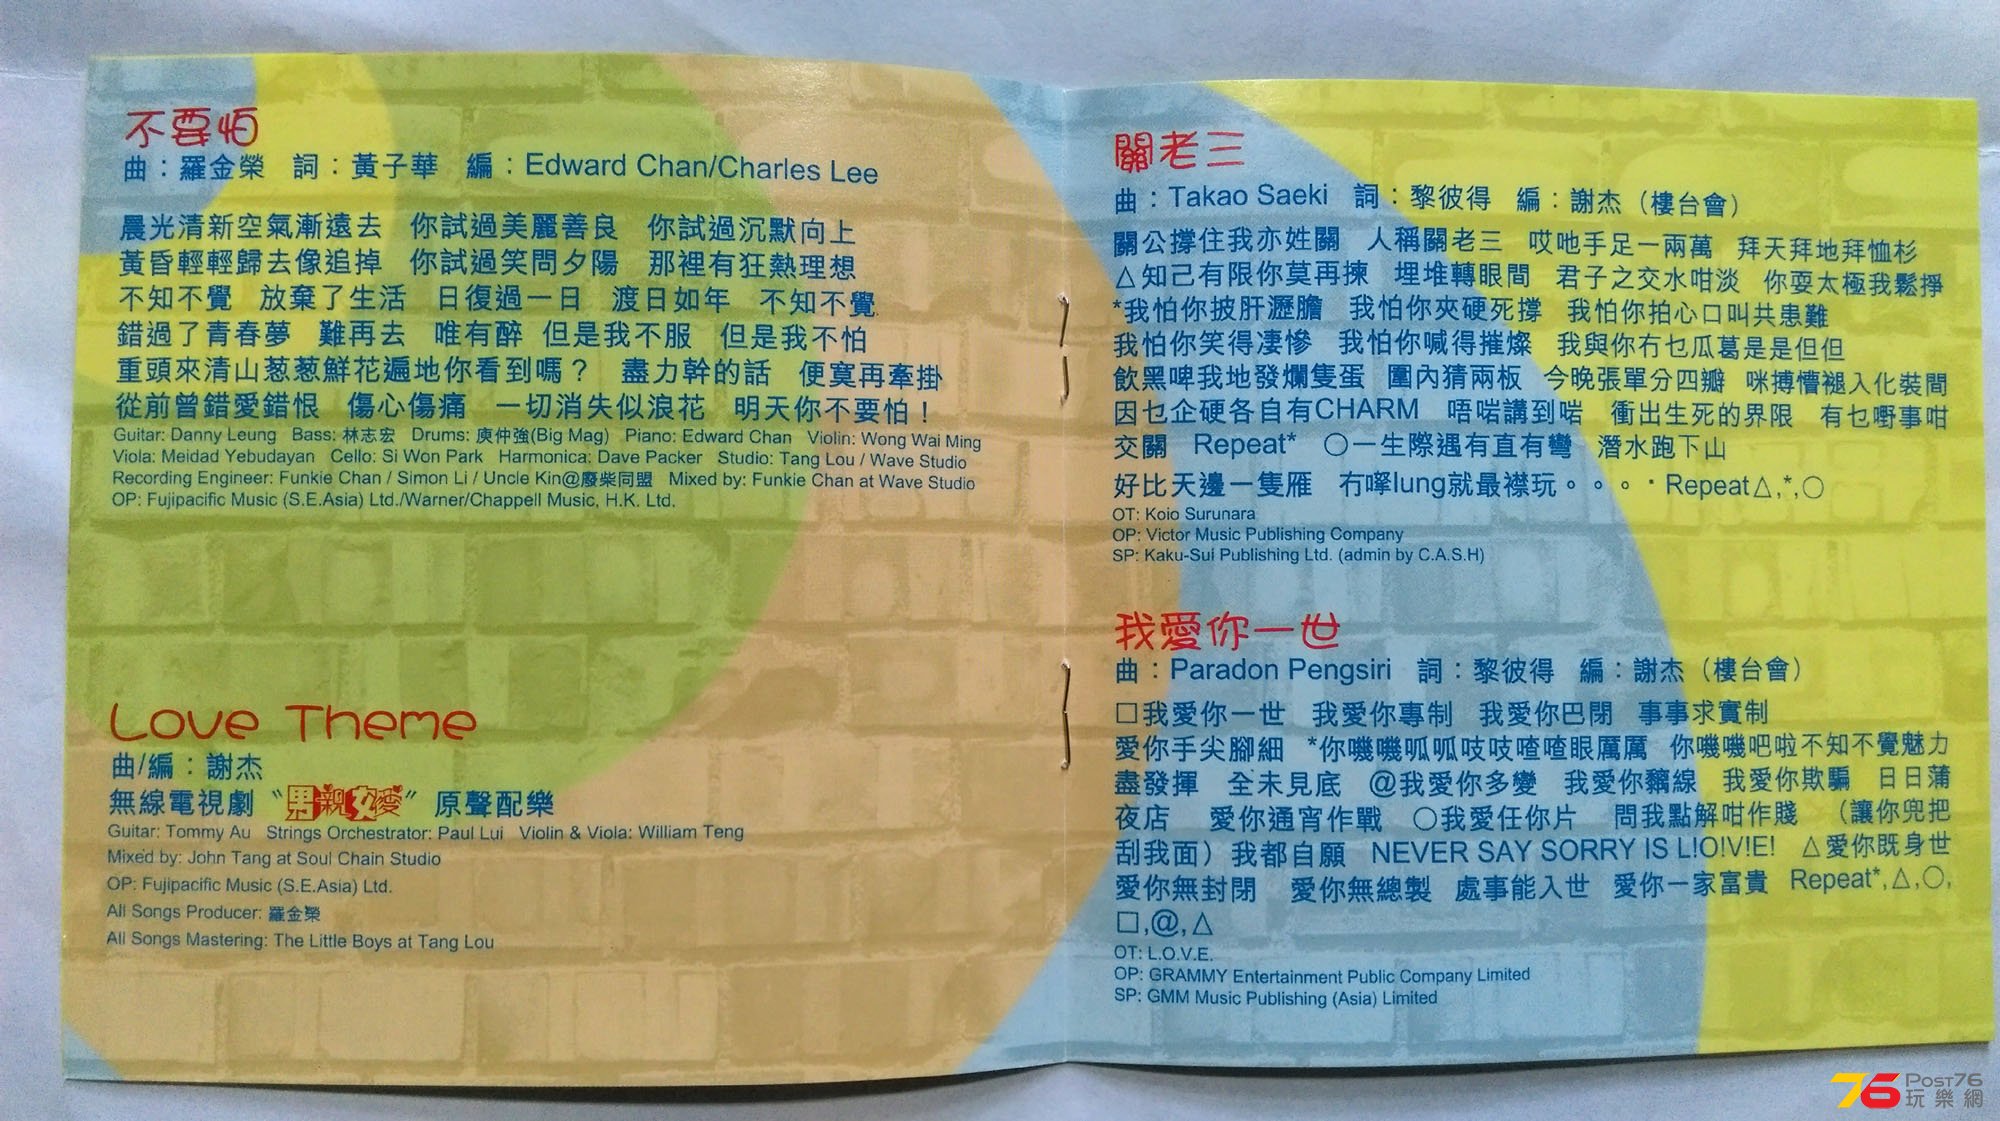 不要怕
曲：羅金榮 詞：黃子華 編：Edward Chan/Charles Lee
晨光清新空氣漸遠去 你試過美麗善良 你試過沉默向上
黃昏輕輕歸去像追掉 你試過笑問夕陽 那裡有狂熱理想
不知不覺 放棄了生活 日復過一日 渡日如年 不知不覺
錯過了青春夢 難再去 唯有醉 但是我不服 但是我不怕
重頭來清山葱葱鮮花遍地你看到嗎？ 盡力幹的話 便寞再牽掛
從前曾錯愛錯恨 傷心傷痛 一切消失似浪花 明天你不要怕！
Guitar: Danny Leung Bass: 林志宏 Drums: 庾仲強(Big Mag) Piano: Edward Chan Violin: Wong Wai Ming
Viola: Meidad Yebudayan Cello: Si Won Park Harmonica: Dave Packer Studio: Tang Lou / Wave Studio
Recording Engineer: Funkie Chan / Simon Li / Uncle Kin@廢柴同盟 Mixed by: Funkie Chan at Wave Studio
OP: Fujipacific Music (S.E.Asia) Ltd./Warner/Chappell Music, H.K. Ltd.
Love Theme
曲/編：謝杰
無線電視劇〝男親女愛〞原聲配樂
Guitar: Tommy Au Strings Orchestrator: Paul Lui Violin & Viola: William Teng
Mixed by: John Tang at Soul Chain Studio
OP: Fujipacific Music (S.E.Asia) Ltd.
All Songs Producer: 羅金榮
All Songs Mastering: The Little Boys at Tang Lou
關老三
曲：Takao Saeki 詞：黎彼得 編：謝杰（樓台會）
關公撐住我亦姓關 人稱關老三 哎吔手足一兩萬 拜天拜地拜恤衫
△知己有限你莫再揀 埋堆轉眼間 君子之交水咁淡 你耍太極我鬆掙
*我怕你披肝瀝膽 我怕你夾硬死撐 我怕你拍心口叫共患難
我怕你笑得凄慘 我怕你喊得摧燦 我與你冇乜瓜葛是是但但
飲黑啤我地發爛隻蛋 圍內猜兩板 今晚張單分四瓣 咪搏懵褪入化裝間
因乜企硬各自有CHARM 唔啱講到啱 衝出生死的界限 有乜嘢事咁
交關 Repeat* ○一生際遇有直有彎 潛水跑下山
好比天邊一隻雁 冇嚤lung就最襟玩。。。‧Repeat△,*,○
OT: Koio Surunara
OP: Victor Music Publishing Company
SP: Kaku-Sui Publishing Ltd. (admin by C.A.S.H)
我愛你一世
曲：Paradon Pengsiri 詞：黎彼得 編：謝杰（樓台會）
□我愛你一世 我愛你專制 我愛你巴閉 事事求實制
愛你手尖腳細 *你嘰嘰呱呱吱吱喳喳眼厲厲 你嘰嘰吧啦不知不覺魅力
盡發揮 全未見底 @我愛你多變 我愛你黐線 我愛你欺騙 日日蒲
夜店 愛你通宵作戰 ○我愛任你片 問我點解咁作賤 （讓你兜把
刮我面）我都自願 NEVER SAY SORRY IS L!O!V!E! △愛你既身世
愛你無封閉 愛你無總製 處事能入世 愛你一家富貴 Repeat*,△,○,
□,@,△
OT: L.O.V.E.
OP: GRAMMY Entertainment Public Company Limited
SP: GMM Music Publishing (Asia) Limited
76 POST76
玩樂網